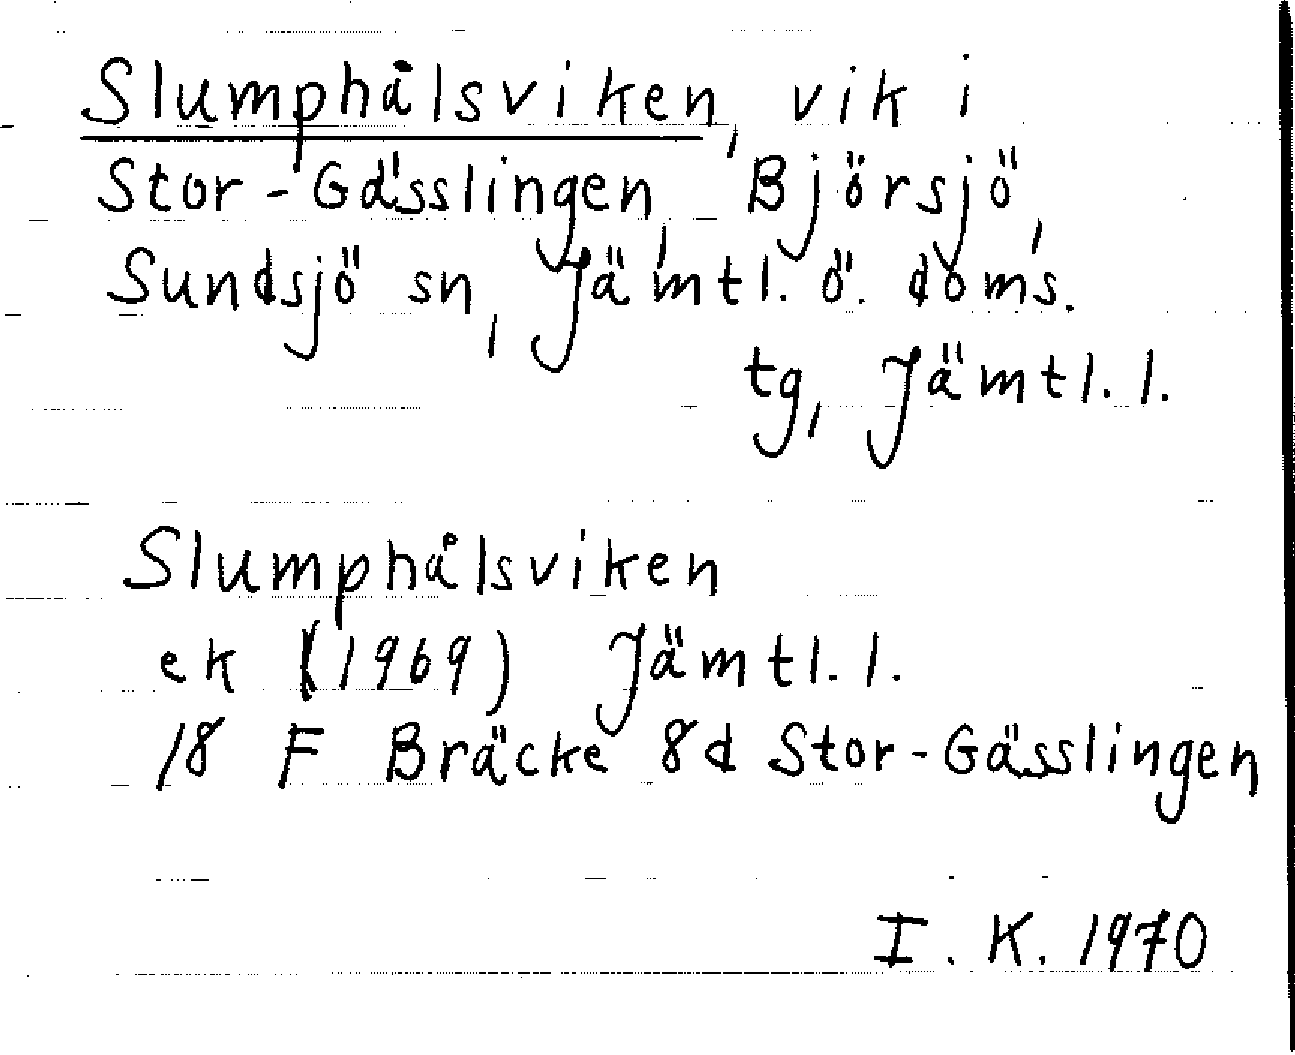 Slumphålsviken, vik i
Stor-Gässlingen, Björsjö,
Sundsjö sn, Jämtl. ö. doms.
tg, Jämtl. l.
Slumphålsviken
ek (1969) Jämtl. l.
18 F Bräcke 8d Stor-Gässlingen
I. K. 1970